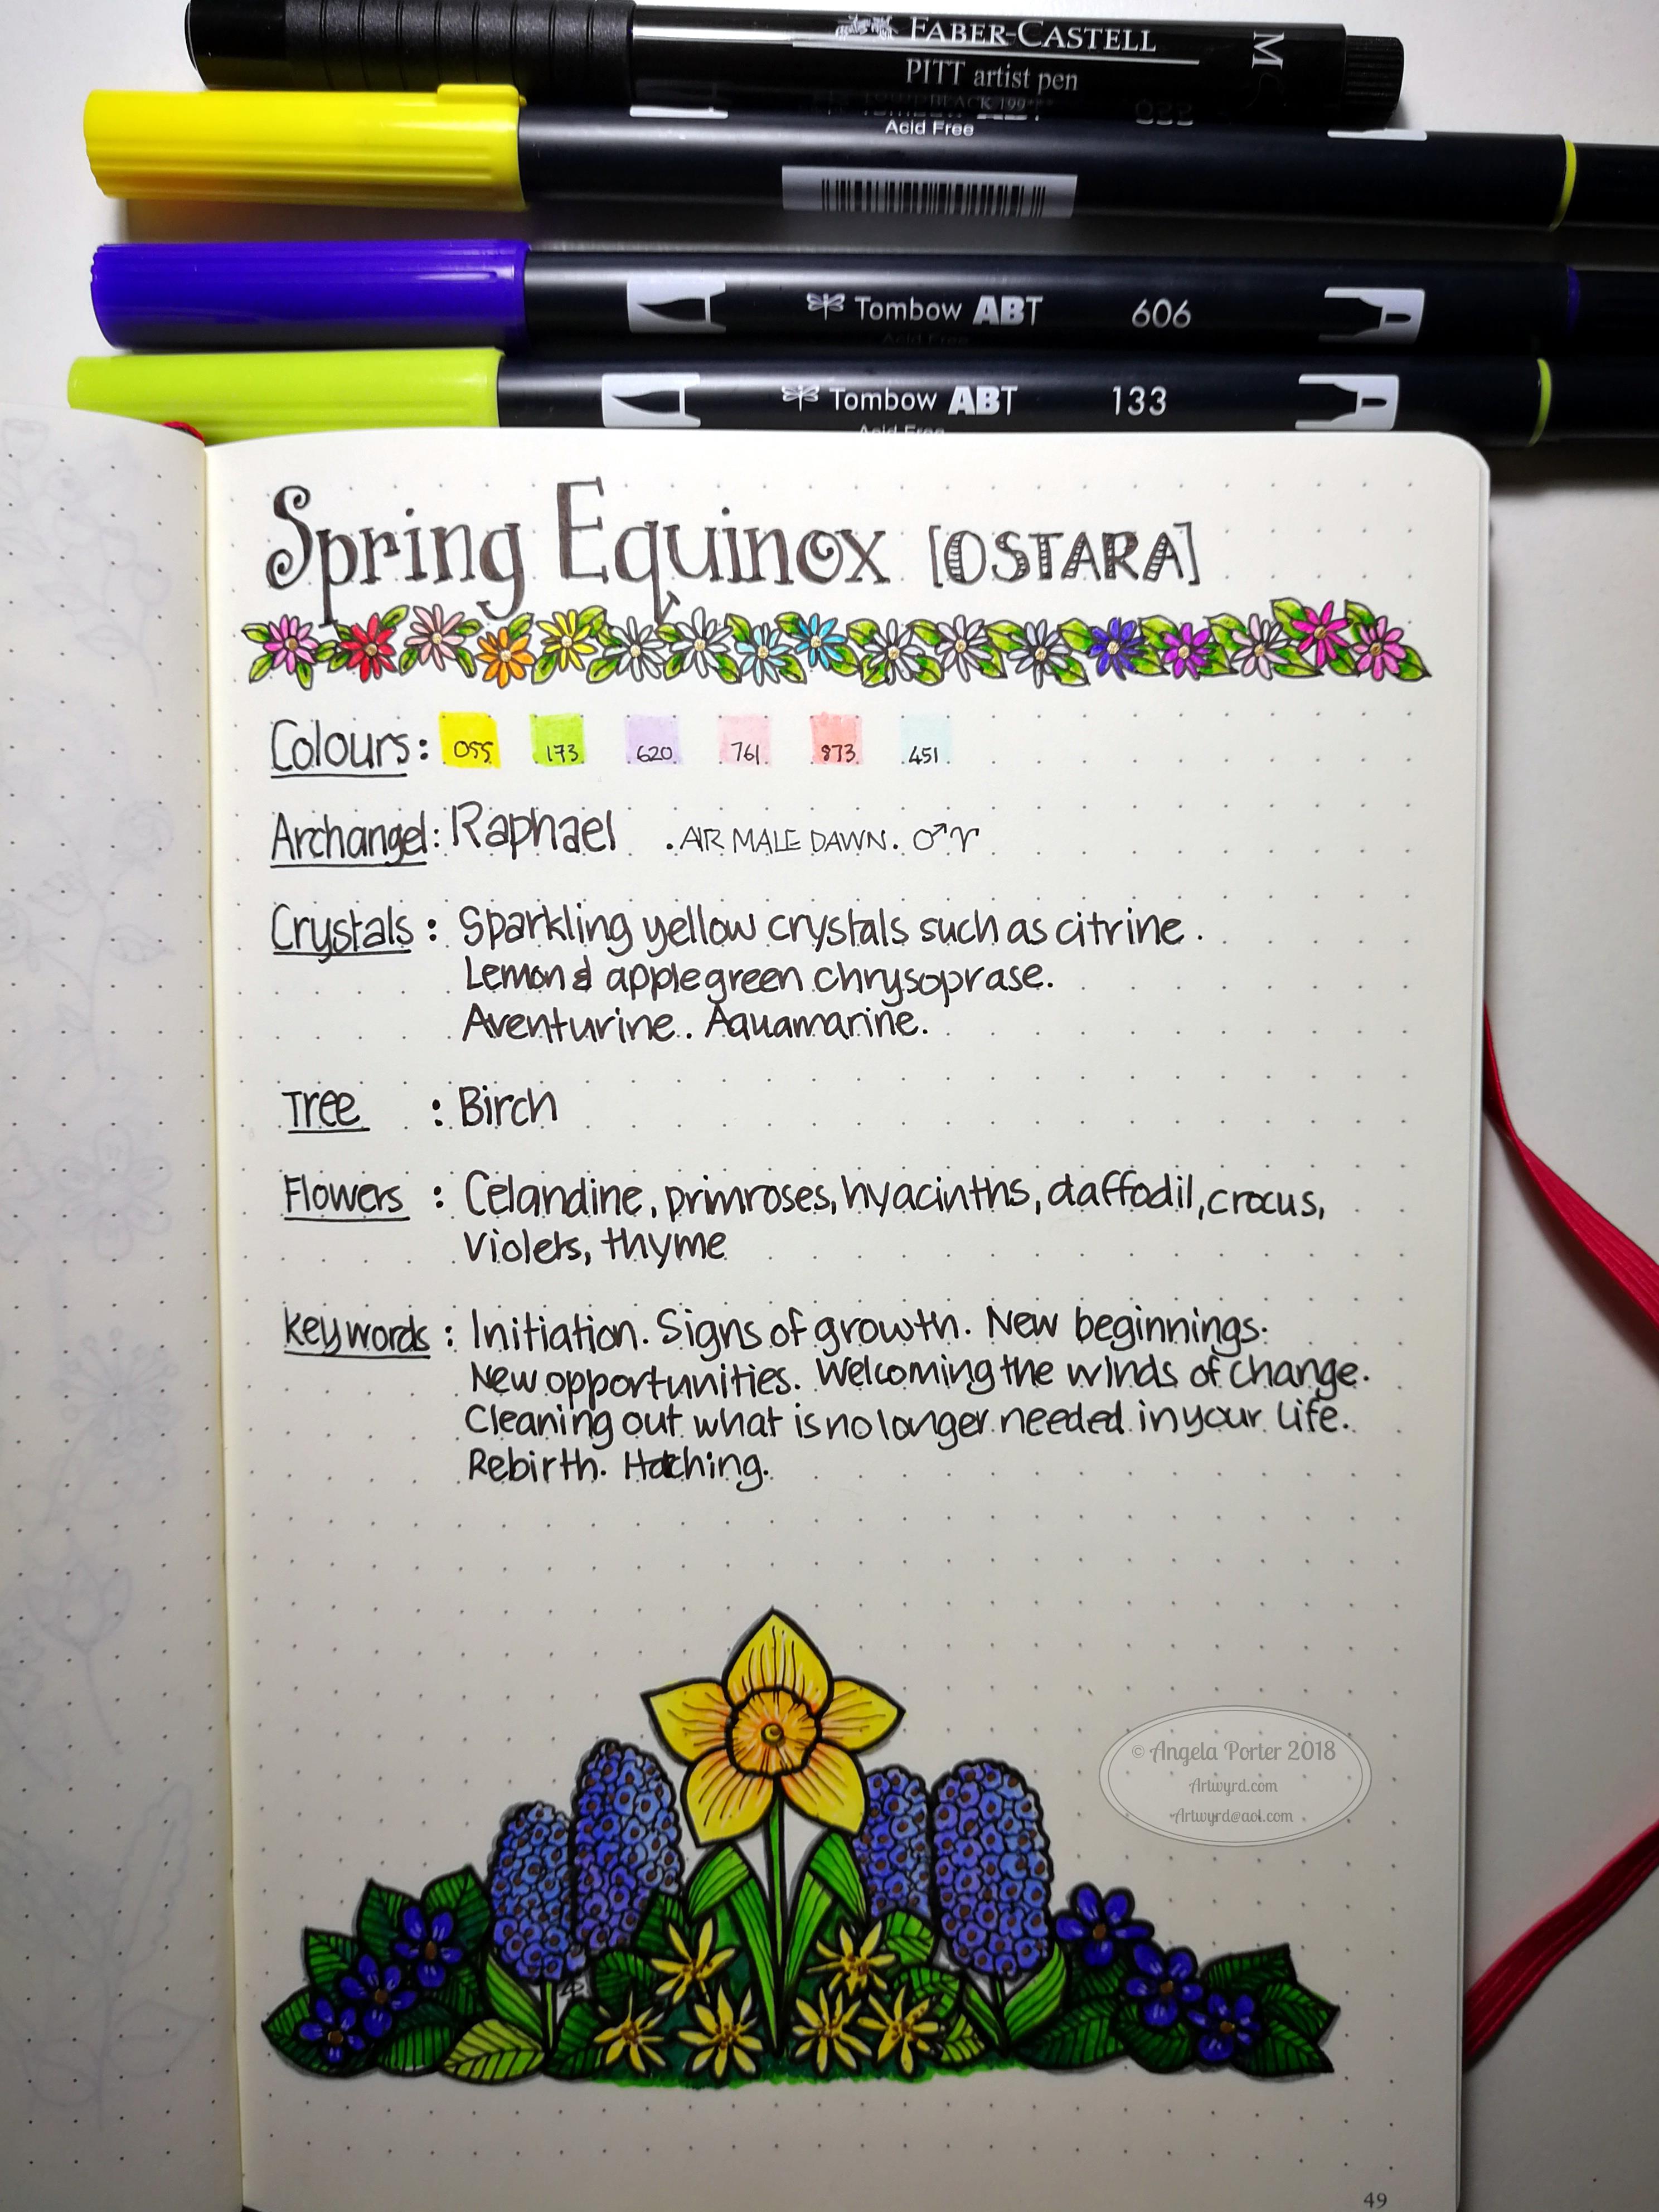 FABER-CASTELL M
PITT artist pen
Acid Free
Tombow ABT 606
Tombow ABT 133
Spring Equinox [OSTARA]
Colours: 055 173 620 761 873 451
Archangel: Raphael . AIR MALE DAWN. ♂♈
Crystals : Sparkling yellow crystals such as citrine.
Lemon & apple green chrysoprase.
Aventurine. Aquamarine.
Tree : Birch
Flowers : Celandine, primroses, hyacinths, daffodil, crocus,
violets, thyme
Keywords : Initiation. Signs of growth. New beginnings.
New opportunities. Welcoming the winds of change.
Cleaning out what is no longer needed in your life.
Rebirth. Hatching.
© Angela Porter 2018
Artwyrd.com
Artwyrd@aol.com
49